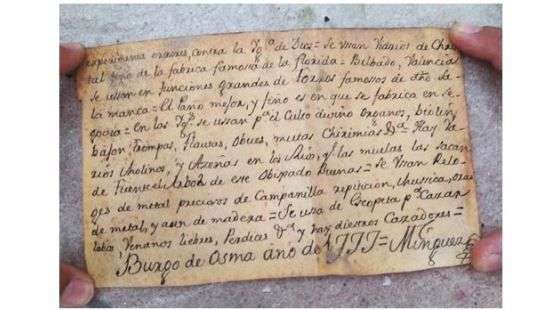 errores, contra la Yg.ª de Dios = Se usan Vidrios de Chris
tal fino de la fabrica famosa de la Florida = Bilbado, Valencias
se usan en funciones grandes de toros famosos de dho Sa
lamanca = El Paño mejor, y fino es en que se fabrica en Se
gobia = en las Yg.s se usan p.ª el Culto divino Organos, biolin,
bajon Trompas, Flautas, Obues, muchas Chirimias &.ª Hay ba
rios Molinos, y Azeñas en los Rios, y las muelas las sacan
de Fuentelcarbol de este Obispado Buenas = Se usan Relo
oges de metal precioso de Campanilla repiticion, y musica, otros
de metal, y aun de madera = Se usa de Escopeta p.ª Cazar
lobos, Venados Liebres, Perdices &.ª y hay diestros Cazadores =
Burgo de Osma año de 1777 = Minguez